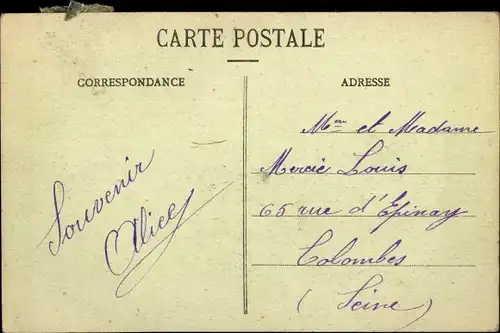 CARTE POSTALE
CORRESPONDANCE
ADRESSE
Souvenir
Alice
Mʳ et Madame
Mercié Louis
65 rue d'Epinay
Colombes
(Seine)